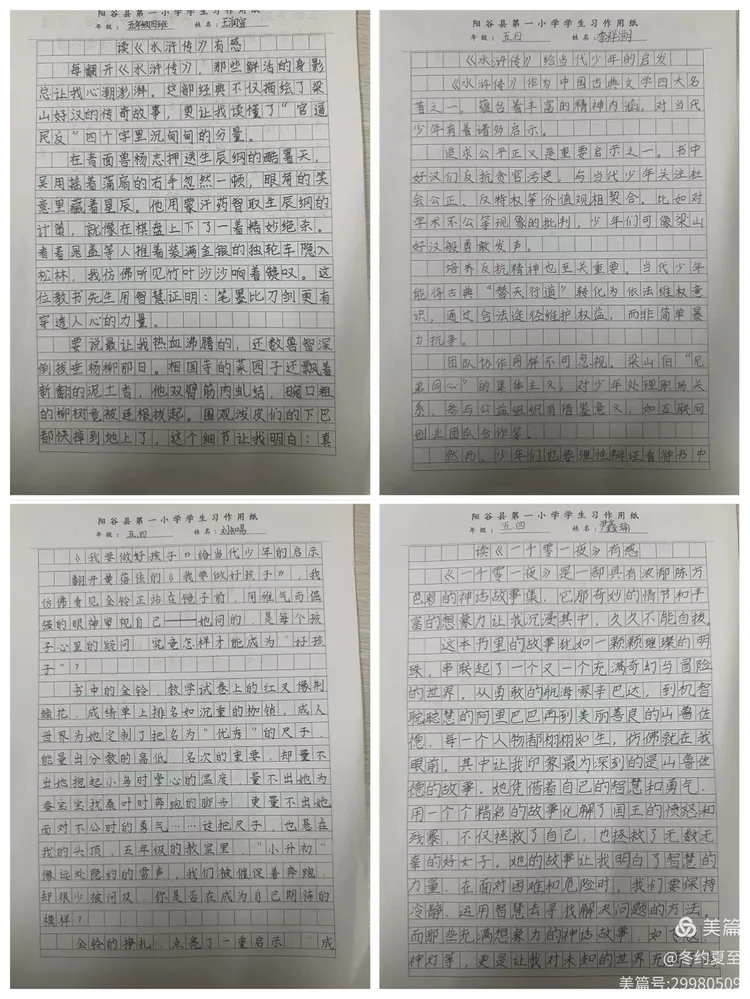 阳谷县第一小学学生习作用纸
年级：五年级四班 姓名：王润萱
读《水浒传》有感
每翻开《水浒传》，那些鲜活的身影
总让我心潮澎湃。这部经典不仅描绘了梁
山好汉的传奇故事，更让我读懂了“官逼
民反”四个字里沉甸甸的分量。
在青面兽杨志押送生辰纲的酷暑天，
吴用摇着蒲扇的右手忽然一顿，眼角的笑
意里藏着星辰。他用蒙汗药智取生辰纲的
计策，就像在棋盘上下了一着精妙绝杀。
看着晁盖等人推着装满金银的独轮车隐入
松林，我仿佛听见竹叶沙沙响着赞叹。这
位教书先生用智慧证明：笔墨比刀剑更有
穿透人心的力量。
要说最让我热血沸腾的，还数鲁智深
倒拔垂杨柳那日。相国寺的菜园子还飘着
新翻的泥土香，他双臂筋肉虬结，碗口粗
的柳树竟被连根拔起。围观泼皮们的下巴
都快掉到地上了，这个细节让我明白：真
阳谷县第一小学学生习作用纸
年级：五.四 姓名：李祥润
《水浒传》给当代少年的启发
《水浒传》作为中国古典文学四大名
著之一，蕴含着丰富的精神内涵，对当代
少年有着诸多启示。
追求公平正义是重要启示之一。书中
好汉们反抗贪官污吏，与当代少年关注社
会公正、反特权等价值观相契合。比如对
学术不公等现象的批判，少年们可像梁山
好汉般勇敢发声。
培养反抗精神也至关重要。当代少年
能将古典“替天行道”转化为依法维权意
识，通过合法途径维护权益，而非简单暴
力抗争。
团队协作同样不可忽视。梁山伯“兄
弟同心”的集体主义，对少年处理职场关
系、参与公益组织有借鉴意义，如互联网
创业团队合作等。
然而，少年们也要理性辩证看待书中
阳谷县第一小学学生习作用纸
年级：五.四 姓名：刘知易
《我要做好孩子》给当代少年的启示
翻开黄蓓佳的《我要做好孩子》，我
仿佛看见金铃正站在镜子前，用稚气而倔
强的眼神审视自己——她问的，是每个孩
子心里的疑问：究竟怎样才能成为“好孩
子”？
书中的金铃，数学试卷上的红叉像荆
棘花，成绩单上排名如沉重的枷锁。成人
世界为她定制了把名为“优秀”的尺子，
能量出分数的高低、名次的重要，却量不
出她抱起小鸟时掌心的温度，量不出她为
蚕宝宝找桑叶时奔跑的脚步，更量不出她
面对不公时的勇气……这把尺子，也悬在
我的头顶，五年级的教室里，“小升初”
像远处隐约的雷声，我们被催促着奔跑，
却很少被问及：你是否在成为自己期待的
模样？
金铃的挣扎，点亮了一重启示：“成
阳谷县第一小学学生习作用纸
年级：五.四 姓名：尹鑫瑞
读《一千零一夜》有感
《一千零一夜》是一部具有浓郁东方
色彩的神话故事集，它那奇妙的情节和丰
富的想象力让我沉浸其中，久久不能自拔。
这本书里的故事犹如一颗颗璀璨的明
珠，串联起了一个又一个充满奇幻与冒险
的世界。从勇敢的航海家辛巴达，到机智
聪慧的阿里巴巴再到美丽善良的山鲁佐
德，每一个人物都栩栩如生，仿佛就在我
眼前。其中让我印象最为深刻的是山鲁佐
德的故事。她凭借着自己的智慧和勇气，
用一个个精彩的故事化解了国王的愤怒和
残暴，不仅拯救了自己，也拯救了无数无
辜的好女子。她的故事让我明白了智慧的
力量，在面对困难和危险时，我们要保持
冷静，运用智慧去寻找解决问题的方法。
而那些充满想象力的神话故事，如飞毯、
神灯等，更是让我对未知的世界充
美篇
@冬约夏至
美篇号:29980509